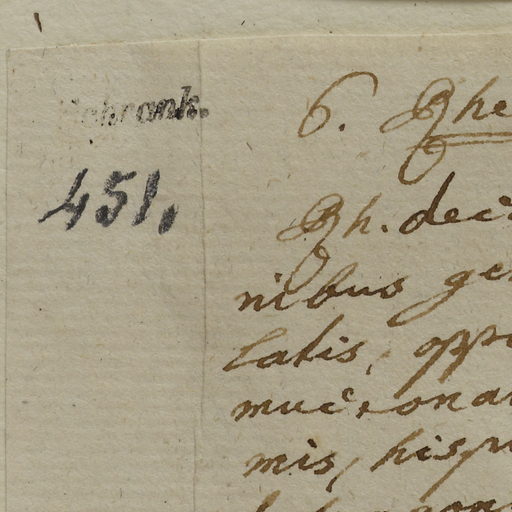 Schrank.
451.
6. Rhe
Rh. dec
nibus ge
latis, oppo
mucronat
mis, hispi